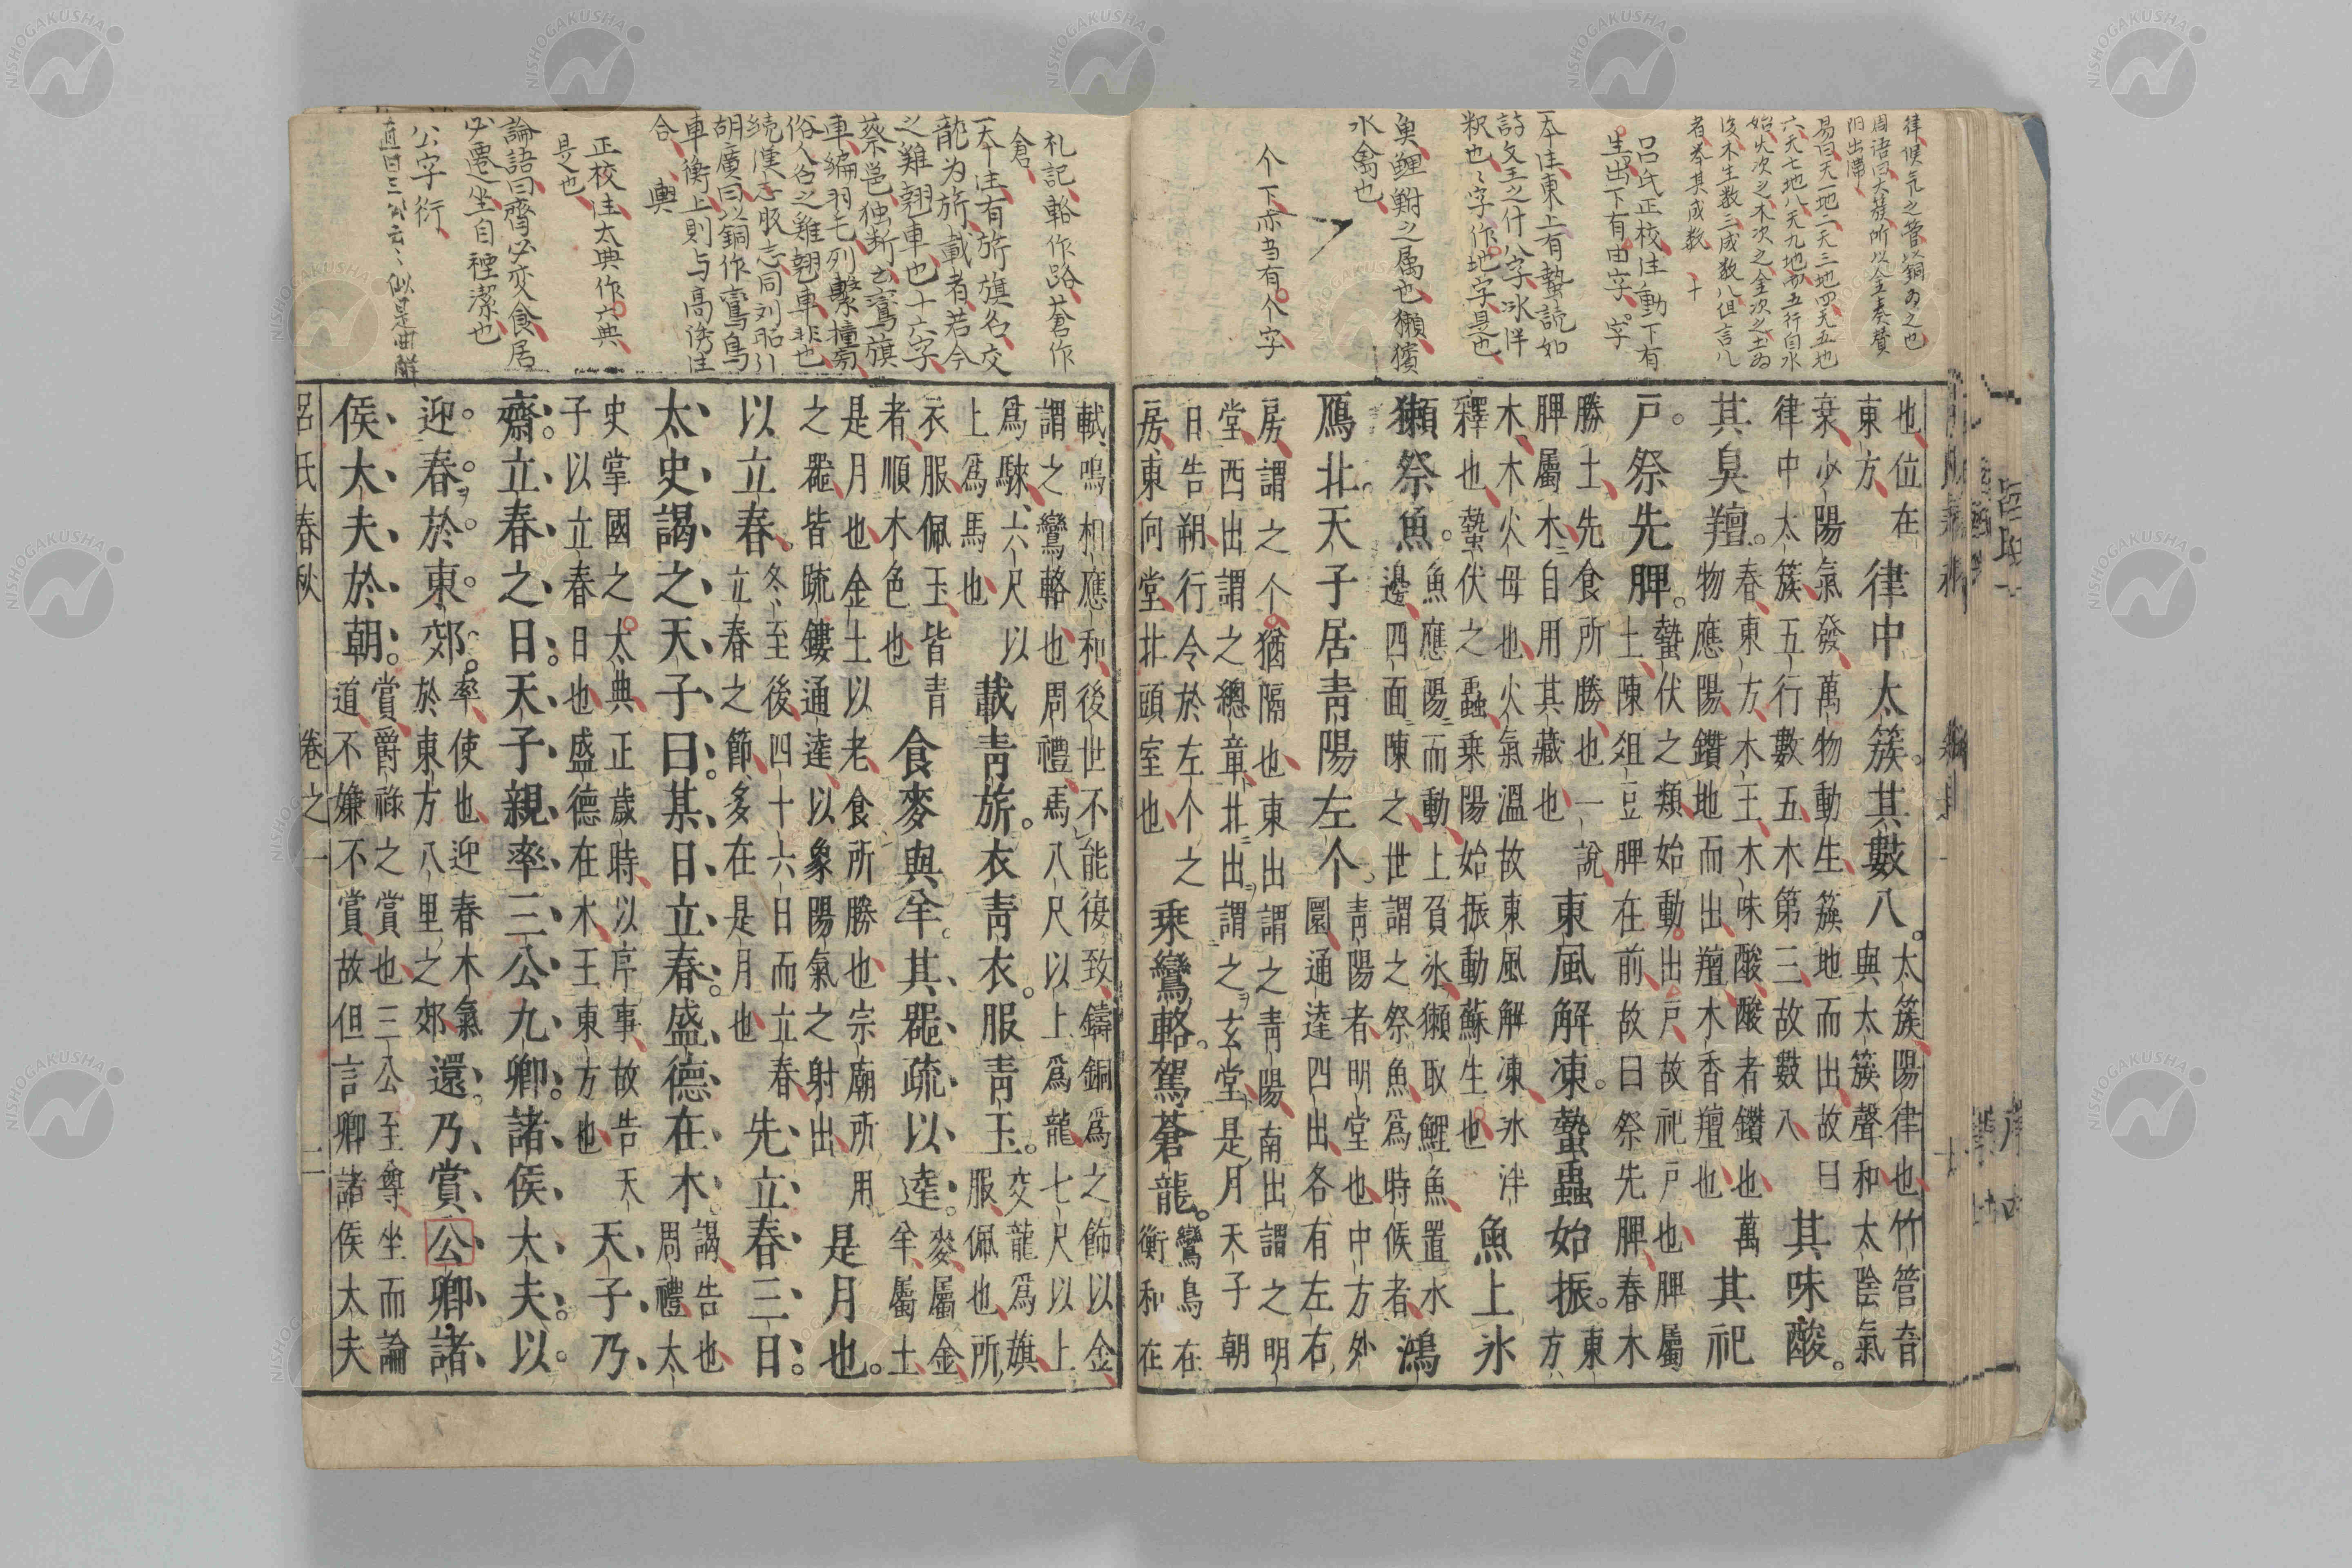 律候気之管以銅為之也
周語曰大蔟所以金奏賛
陽出滞
易曰天一地二天三地四天五地
六天七地八天九地十五行自水
始火次之木次之金次之土為
後木生数三成数八但言八
者举其成数
呂氏正校注動下有
生出下有由字字
一本注東上有蟄読如
詩文王之什八字氷泮
釈也々字作地字是也
魚鯉鮒之属也獺獱
水禽也
个下亦当有个字
也位在
東方
律中太簇其數八
太簇陽律也竹管音
與太簇聲和太陰氣
衰少陽氣發萬物動生簇地而出故曰
律中太簇五行數五木第三故數八
其味酸
其臭羶
春東方木王木味酸酸者鑽也萬
物應陽鑽地而出羶木香羶也
其祀
戶祭先脾
蟄伏之類始動出戶故祀戶也脾屬
土陳俎豆脾在前故曰祭先脾春木
勝土先食所勝也一說
脾屬木自用其藏也
東風解凍蟄蟲始振
東
方
木木火母也火氣溫故東風解凍冰泮
釋也蟄伏之蟲乗陽始振動蘇生也
魚上冰
獺祭魚
魚應陽而動上負冰獺取鯉魚置水
邊四面陳之世謂之祭魚爲時候者
鴻
鴈北天子居青陽左个
青陽者明堂也中方外
圜通達四出各有左右
房謂之个猶隔也東出謂之青陽南出謂之明
堂西出謂之總章北出謂之玄堂是月天子朝
日告朔行令於左个之
房東向堂北頭室也
乗鸞輅駕蒼龍
鸞鳥在
衡和在
礼記輅作路蒼作
倉
一本注有旂旗名交
龍为旂載者若今
之雞翹車也十六字
蔡邕独断云鸞旗
車編羽毛列繋橦旁
俗人名之雞翹車非也
続漢志服志同刘昭引
胡廣曰以銅作鸞鳥
車衡上則与高誘注
合 輿
正校注太典作六典
是也
論語曰齊必変食居
必遷坐自禋潔也
公字衍
直曰三公云々似是曲解
軾鳴相應和後世不能復致鑄銅爲之飾以金
謂之鸞輅也周禮馬八尺以上爲龍七尺以上
爲騋六尺以
上爲馬也
載青旂衣青衣服青玉
交龍爲旗
服佩也所
衣服佩玉皆青
者順木色也
食麥與羊其器疏以達
麥屬金
羊屬土
是月也金土以老食所勝也宗廟所用
之器皆疏鏤通達以象陽氣之射出
是月也
以立春
冬至後四十六日而立春
立春之節多在是月也
先立春三日
太史謁之天子曰其日立春盛德在木
謁告也
周禮太
史掌國之太典正歲時以序事故告天
子以立春日也盛德在木王東方也
天子乃
齋立春之日天子親率三公九卿諸侯大夫以
迎春於東郊
率使也迎春木氣
於東方八里之郊
還乃賞公卿諸
侯大夫於朝
賞爵祿之賞也三公至尊坐而論
道不嫌不賞故但言卿諸侯大夫
呂氏春秋 卷之一 二